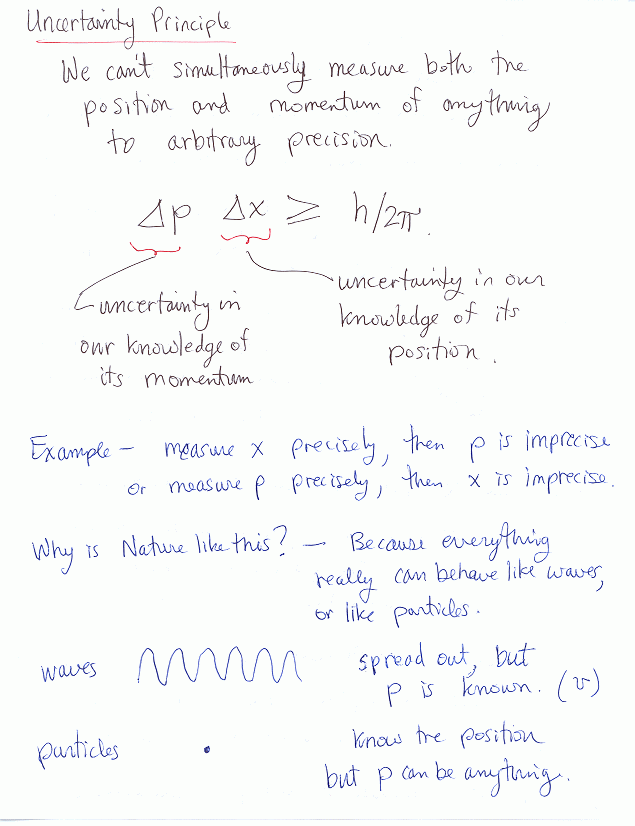 Uncertainty Principle
We can't simultaneously measure both the
position and momentum of anything
to arbitrary precision.
Δp Δx ≥ h/2π.
uncertainty in our
knowledge of its
position.
uncertainty in
our knowledge of
its momentum
Example – measure x precisely, then p is imprecise
or measure p precisely, then x is imprecise.
Why is Nature like this? – Because everything
really can behave like waves,
or like particles.
waves spread out, but
p is known. (v)
particles know the position
but p can be anything.